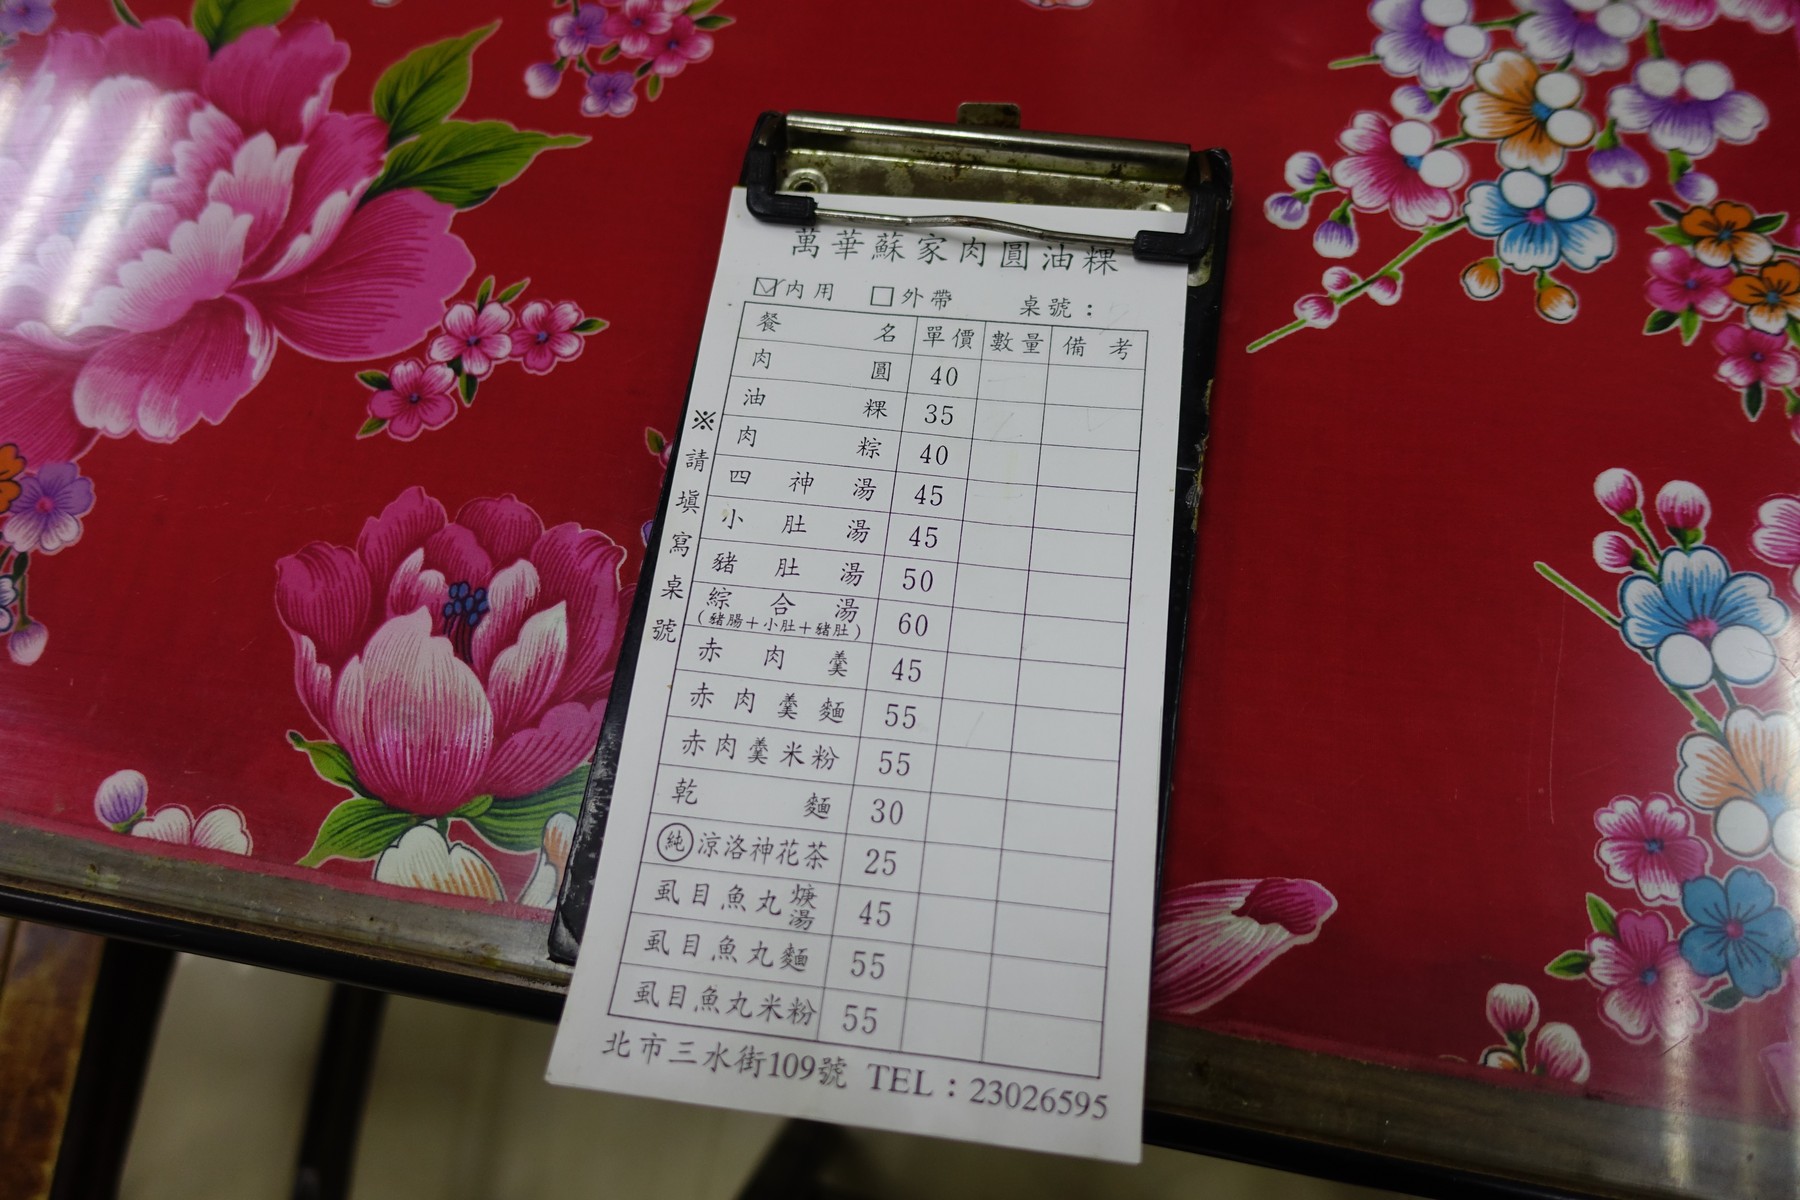 萬華蘇家肉圓油粿
內用 外帶 桌號：
餐名 單價 數量 備考
肉圓 40
油粿 35
肉粽 40
四神湯 45
小肚湯 45
豬肚湯 50
綜合湯 60
(豬腸+小肚+豬肚)
赤肉羹 45
赤肉羹麵 55
赤肉羹米粉 55
乾麵 30
純 涼洛神花茶 25
虱目魚丸焿湯 45
虱目魚丸麵 55
虱目魚丸米粉 55
※請填寫桌號
北市三水街109號 TEL：23026595